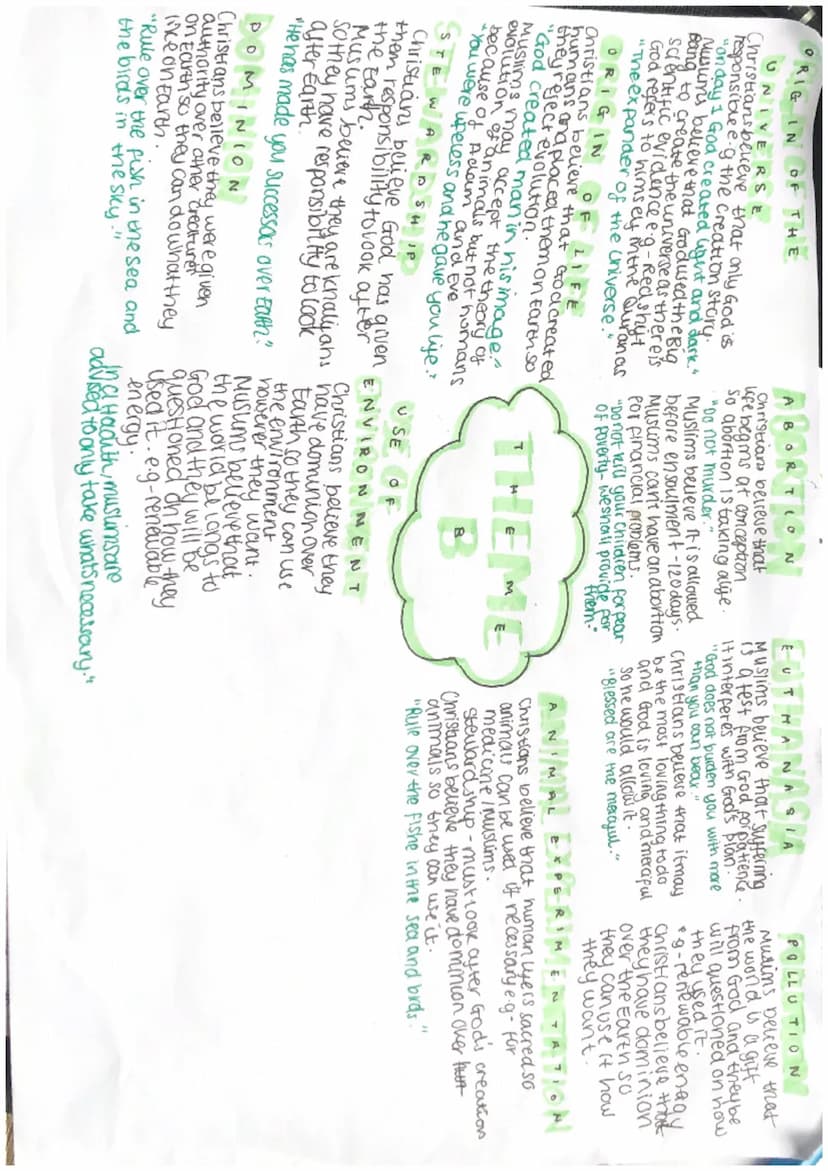 ORIGIN OF THE
UNIVERSE
Christians believe that only God is
responsible e.g the creation story.
"On day 1 God created light and dark."
Muslims believe that God used the Big
Bang to create the universe as there is
scientific evidence e.g - Red shift
God refers to himself in the Quran as
"The expander of the universe."
ORIGIN OF LIFE
Christians believe that God created
humans and placed them on Earth, so
they reject evolution.
"God created man in his image."
Muslims may accept the theory of
evolution of animals but not humans
because of Adam and Eve
"You were lifeless and he gave you life."
STEWARDSHIP
Christians believe God has given
them responsibility to look after
the Earth.
Muslims believe they are khalifahs
so they have responsibility to look
after Earth.
"He has made you successors over Earth."
DOMINION
Christians believe they were given
authority over other creatures
on Earth so they can do what they
like on Earth.
"Rule over the fish in the sea and
the birds in the sky."
ABORTION
Christians believe that
life begins at conception
so abortion is taking a life.
"Do not murder."
Muslims believe it is allowed
before ensoulment - 120 days.
Muslims can't have an abortion
for financial problems.
"Do not kill your children for fear
of poverty - we shall provide for
them."
THEME
B
USE OF
ENVIRONMENT
Christians believe they
have dominion over
Earth so they can use
the environment
however they want.
Muslims believe that
the world belongs to
God and they will be
questioned on how they
used it. e.g - renewable
energy.
muslims are
advised to only take whats necessary."
EUTHANASIA
Muslims believe that suffering
is a test from God for patience.
It interferes with God's plan.
"God does not burden you with more
than you can bear."
Christians believe that it may
be the most loving thing to do
and God is loving and merciful
so he would allow it.
"Blessed are the merciful."
ANIMAL EXPERIMENTATION
Christians believe that human life is sacred so
animals can be used if necessary e.g - for
medicine / Muslims.
stewardship - must look after God's creation
Christians believe they have dominion over
animals so they can use it.
"Rule over the fishe in the sea and birds."
POLLUTION
Muslims believe that
the world is a gift
from God and they be
will questioned on how
they used it.
e.g - renewable energy
Christians believe that
they have dominion
over the Earth so
they can use it how
they want.